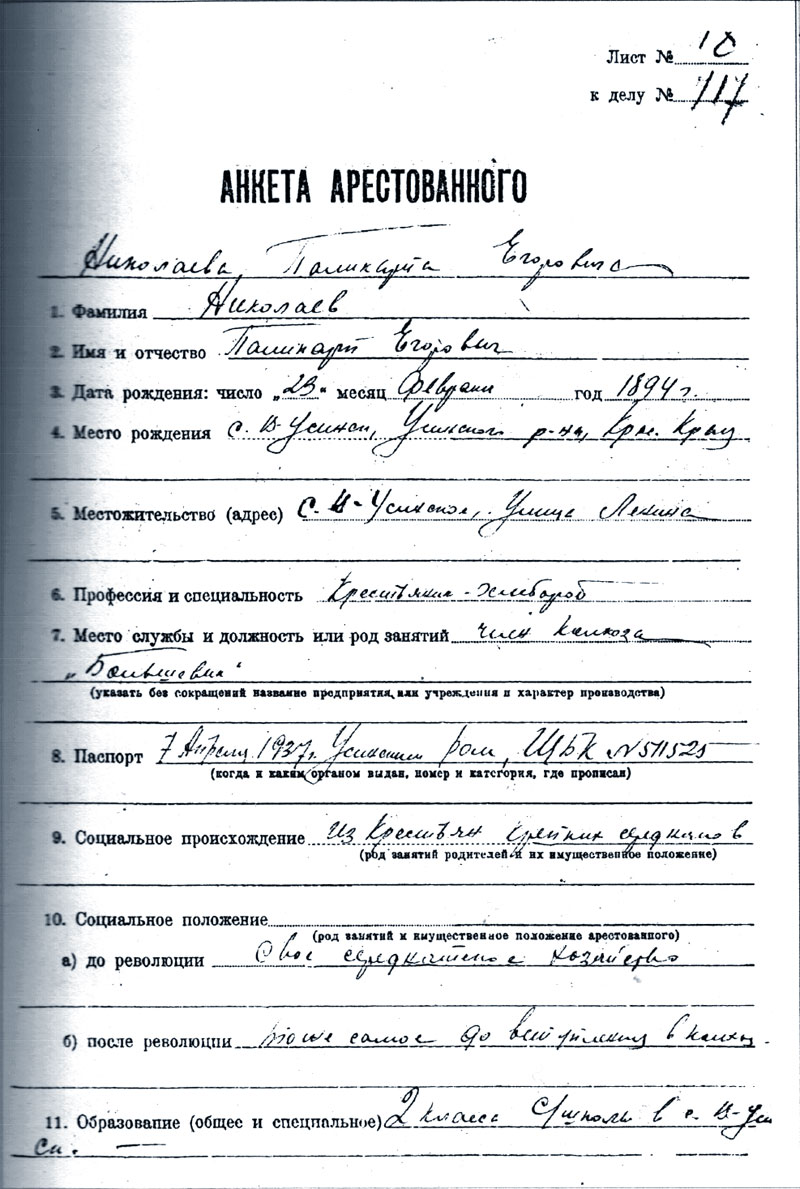 Лист № 10
к делу № 717
АНКЕТА АРЕСТОВАННОГО
Николаева, Паликарпа Егоровича
1. Фамилия Николаев
2. Имя и отчество Паликарп Егорович
3. Дата рождения: число „23“ месяц Февраля год 1894 г.
4. Место рождения с. В-Усинск, Усинского р-на, Крас. Края
5. Местожительство (адрес) С. В-Усинское, Улица Ленина
6. Профессия и специальность Крестьянин-хлебороб
7. Место службы и должность или род занятий член Колхоза
„Большевик“
(указать без сокращений название предприятия или учреждения и характер производства)
8. Паспорт 7 Апреля 1937г. Усинским ром, ЩЬК № 511525
(когда и каким органом выдан, номер и категория, где прописан)
9. Социальное происхождение Из Крестьян середняков
(род занятий родителей и их имущественное положение)
10. Социальное положение
(род занятий и имущественное положение арестованного)
а) до революции Свое середняцкое хозяйство
б) после революции тоже самое до вступления в колхоз.
11. Образование (общее и специальное) 2 класса С/школы в с. В-Уси
ск.